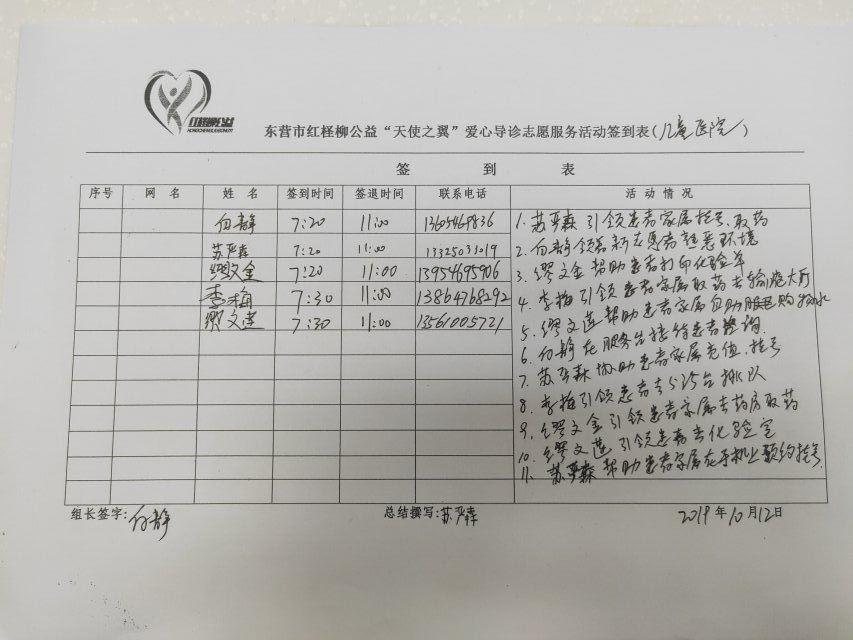 红柽柳公益
东营市红柽柳公益“天使之翼”爱心导诊志愿服务活动签到表(儿童医院)
签 到 表
序号 网 名 姓 名 签到时间 签退时间 联系电话 活 动 情 况
白静 7:20 11:00 13605469836
苏严森 7:20 11:00 13325031019
缪文金 7:20 11:00 13954695906
李梅 7:30 11:00 13864768292
缪文莲 7:30 11:00 13561005721
1. 苏严森引领患者家属挂号、取药
2. 白静领着新志愿者熟悉环境
3. 缪文金帮助患者打印化验单
4. 李梅引领患者家属取药去输液大厅
5. 缪文莲帮助患者家属自助购水
6. 白静在服务台接待患者咨询
7. 苏严森协助患者家属充值、挂号
8. 李梅引领患者去分诊台排队
9. 缪文金引领患者家属去药房取药
10. 缪文莲引领患者去化验室
11. 苏严森帮助患者家属在手机上预约挂号
组长签字:白静 总结撰写:苏严森 2019年10月12日